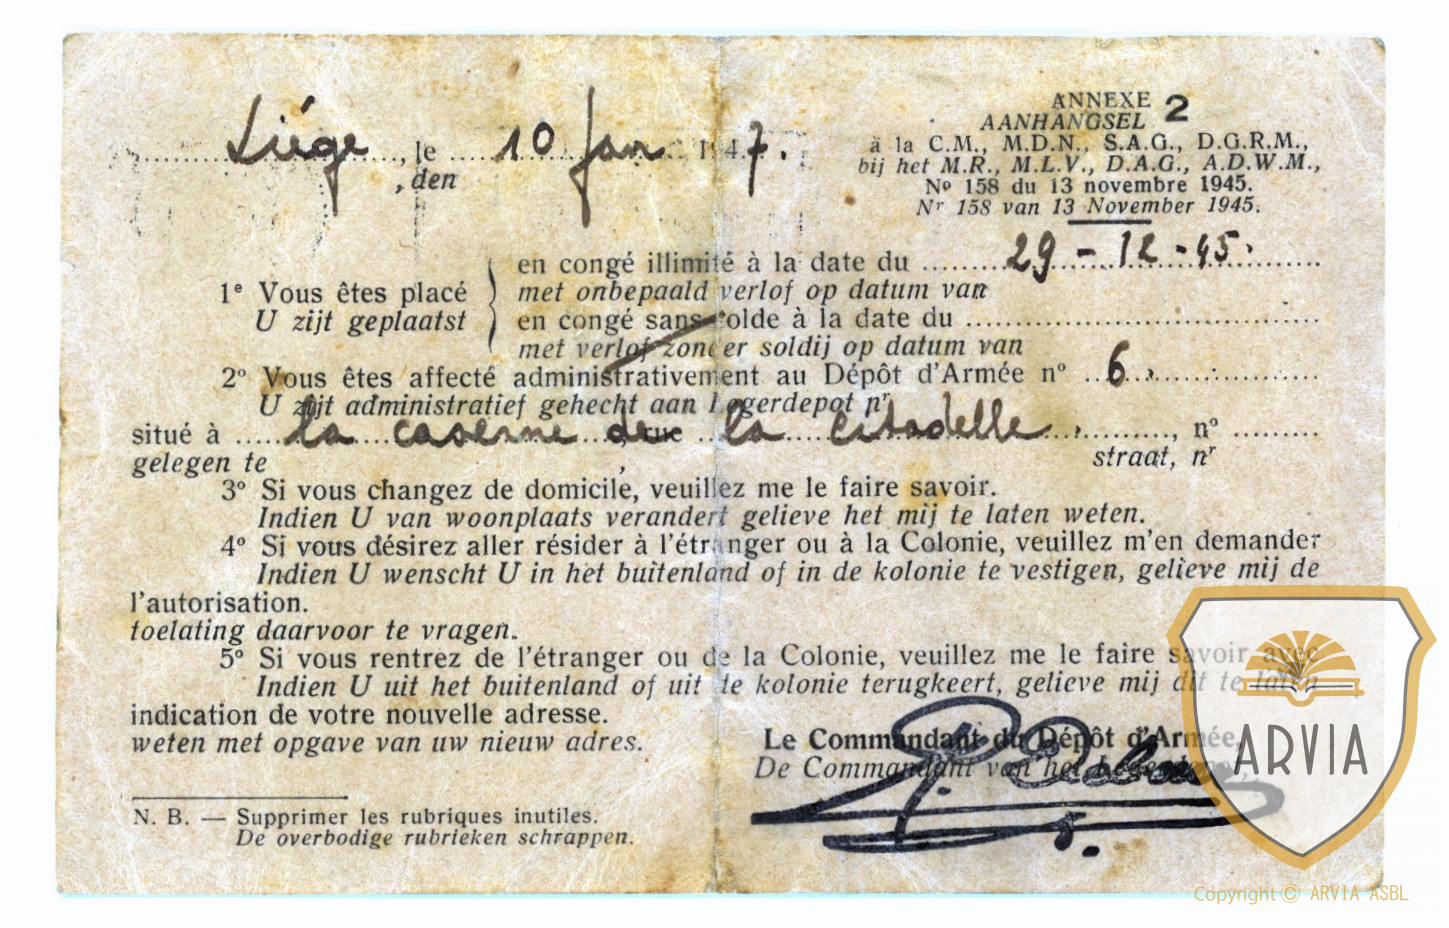 ANNEXE 2
AANHANGSEL
Liége, le 10 Jan 1947.
, den
à la C.M., M.D.N., S.A.G., D.G.R.M.,
bij het M.R., M.L.V., D.A.G., A.D.W.M.,
No 158 du 13 novembre 1945.
Nr 158 van 13 November 1945.
en congé illimité à la date du 29-12-45.
1e Vous êtes placé met onbepaald verlof op datum van
U zijt geplaatst en congé sans solde à la date du
met verlof zonder soldij op datum van
2o Vous êtes affecté administrativement au Dépôt d'Armée no 6
U zijt administratief gehecht aan Legerdepot nr
situé à la caserne de, rue la Citadelle, no
gelegen te , straat, nr
3o Si vous changez de domicile, veuillez me le faire savoir.
Indien U van woonplaats verandert gelieve het mij te laten weten.
4o Si vous désirez aller résider à l'étranger ou à la Colonie, veuillez m'en demander
Indien U wenscht U in het buitenland of in de kolonie te vestigen, gelieve mij de
l'autorisation.
toelating daarvoor te vragen.
5o Si vous rentrez de l'étranger ou de la Colonie, veuillez me le faire savoir, avec
Indien U uit het buitenland of uit de kolonie terugkeert, gelieve mij dit te laten
indication de votre nouvelle adresse.
weten met opgave van uw nieuw adres.
Le Commandant du Dépôt d'Armée,
De Commandant van het Legerdepot,
N. B. — Supprimer les rubriques inutiles.
De overbodige rubrieken schrappen.
ARVIA
Copyright © ARVIA ASBL